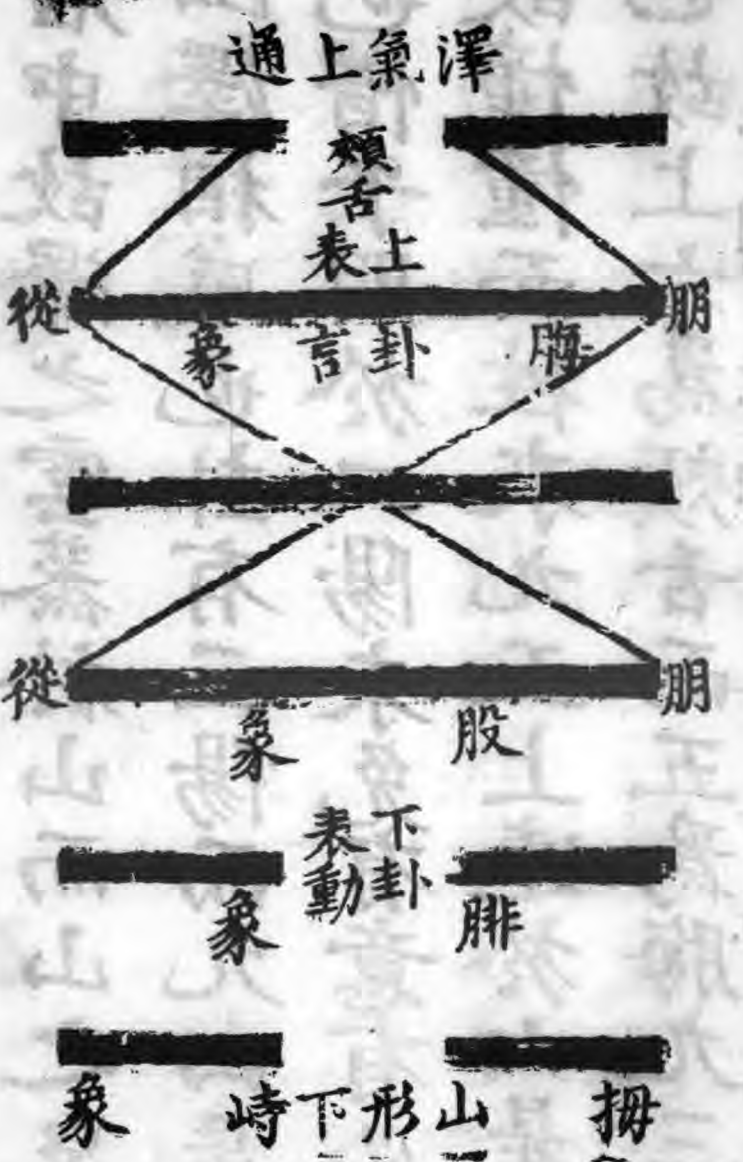 澤氣上通
頰舌
上卦
表言
朋
從
脢
象
朋
從
股
象
下卦
表動
腓
象
拇
山形下峙
象